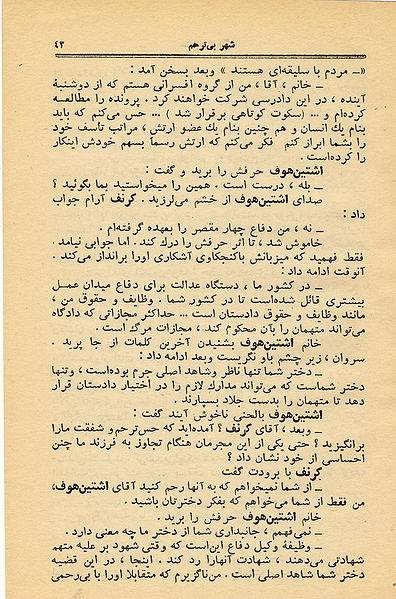 شهر بی‌ترحم ۴۳
«ـ مردم با سلیقه‌ای هستند » وبعد بسخن آمد :
ـ خانم ، آقا ، من از گروه افسرانی هستم که از دوشنبهٔ
آینده ، در این دادرسی شرکت خواهند کرد . پرونده را مطالعه
کرده‌ام و ... (سکوت کوتاهی برقرار شد ) ... حس می‌کنم که باید
بنام یك انسان و هم چنین بنام یك عضو ارتش ، مراتب تأسف خود
را بشما ابراز کنم فکر می‌کنم که ارتش رسماً بسهم خودش اینکار
را کرده‌است .
اشتین‌هوف حرفش را برید و گفت :
ـ بله ، درست است . همین را میخواستید بما بگوئید ؟
صدای اشتین‌هوف از خشم می‌لرزید . گرنف آرام جواب
داد :
ـ نه ، من دفاع چهار مقصر را بعهده گرفته‌ام .
خاموش شد ، تا اثر حرفش را درك کند . اما جوابی نیامد .
فقط فهمید که میزبانش باکنجکاوی آشکاری اورا برانداز می‌کند .
آنوقت ادامه داد :
ـ در کشور ما ، دستگاه عدالت برای دفاع میدان عمل
بیشتری قائل شده‌است تا در کشور شما . وظایف و حقوق من ،
مانند وظایف و حقوق دادستان است ... حداکثر مجازاتی که دادگاه
می‌تواند متهمان را بآن محکوم کند ، مجازات مرگ است .
خانم اشتین‌هوف بشنیدن آخرین کلمات از جا پرید .
سروان ، زیر چشم باو نگریست وبعد ادامه داد :
ـ دختر شما تنها ناظر وشاهد اصلی جرم بوده‌است ، وتنها
دختر شماست که می‌تواند مدارك لازم را در اختیار دادستان قرار
دهد تا متهمان را بدست جلاد بسپارند .
اشتین‌هوف بالحنی ناخوش آیند گفت :
ـ وبعد ، آقای گرنف ؟ آمده‌اید که حس‌ترحم و شفقت مارا
برانگیزید ؟ حتی یکی از این مجرمان هنگام تجاوز به فرزند ما چنین
احساسی از خود نشان داد ؟
گرنف با برودت گفت
ـ از شما نمیخواهم که به آنها رحم کنید آقای اشتین‌هوف،
من فقط از شما می‌خواهم که بفکر دخترتان باشید .
خانم اشتین‌هوف حرفش را برید .
ـ نمی‌فهمم ، جانبداری شما از دختر ما چه معنی دارد .
ـ وظیفهٔ وکیل دفاع این‌است که وقتی شهود بر علیه متهم
شهادتی می‌دهند ، شهادت آنهارا رد کند . اینجا ، در این قضیه
دختر شما شاهد اصلی است . من‌ناگزیرم که متقابلا اورا با بی‌رحمی